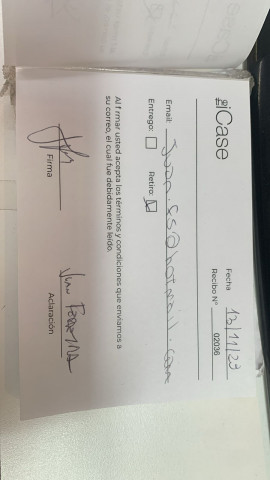 iCase
Fecha 13/11/23
Recibo N° 02036
Email:
Entrego: Retiro:
Al firmar usted acepta los términos y condiciones que enviamos a
su correo, el cual fue debidamente leído.
Firma
Juan
Aclaración